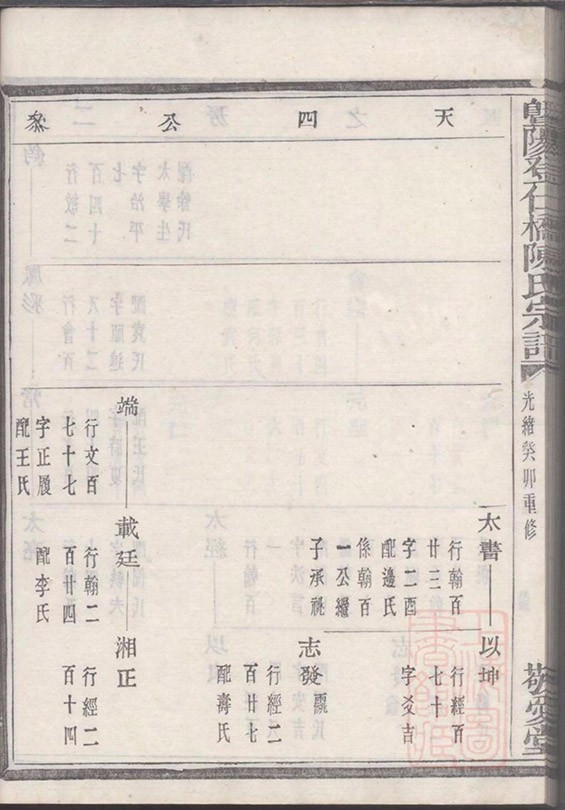 暨陽登仁橋陳氏宗譜
光緒癸卯重修
敬愛堂
天四公系
太書——以坤
行翰百
廿三
字二酉
配邊氏
係翰百
一公繼
子承祧
行經百
七十
字爻吉
志發
行經二
百廿七
配壽氏
端——載廷——湘正
行文百
七十七
字正履
配王氏
行翰二
百廿四
配李氏
行經二
百十四